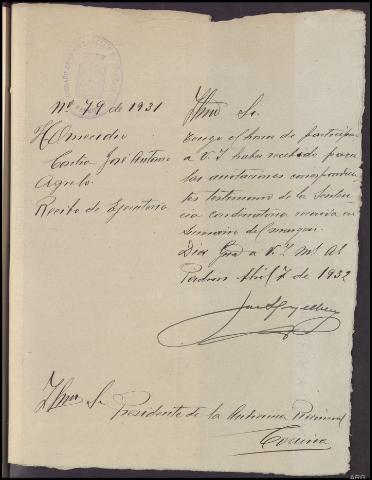 Nº 79 de 1931
Homicidio
Contra José Antonio
Agrelo
Recibo de Ejecutoria
Ilmo Sr.
Tengo el honor de participar
a V. I. haber recibido para
las anotaciones correspondien
tes testimonio de la Senten
cia condenatoria recaida en
sumario del margen.
Dios Gue a V. I. ms as
Padron Abril 7 de 1932
Ilmo Sr. Presidente de la Audiencia Provincial
Coruña